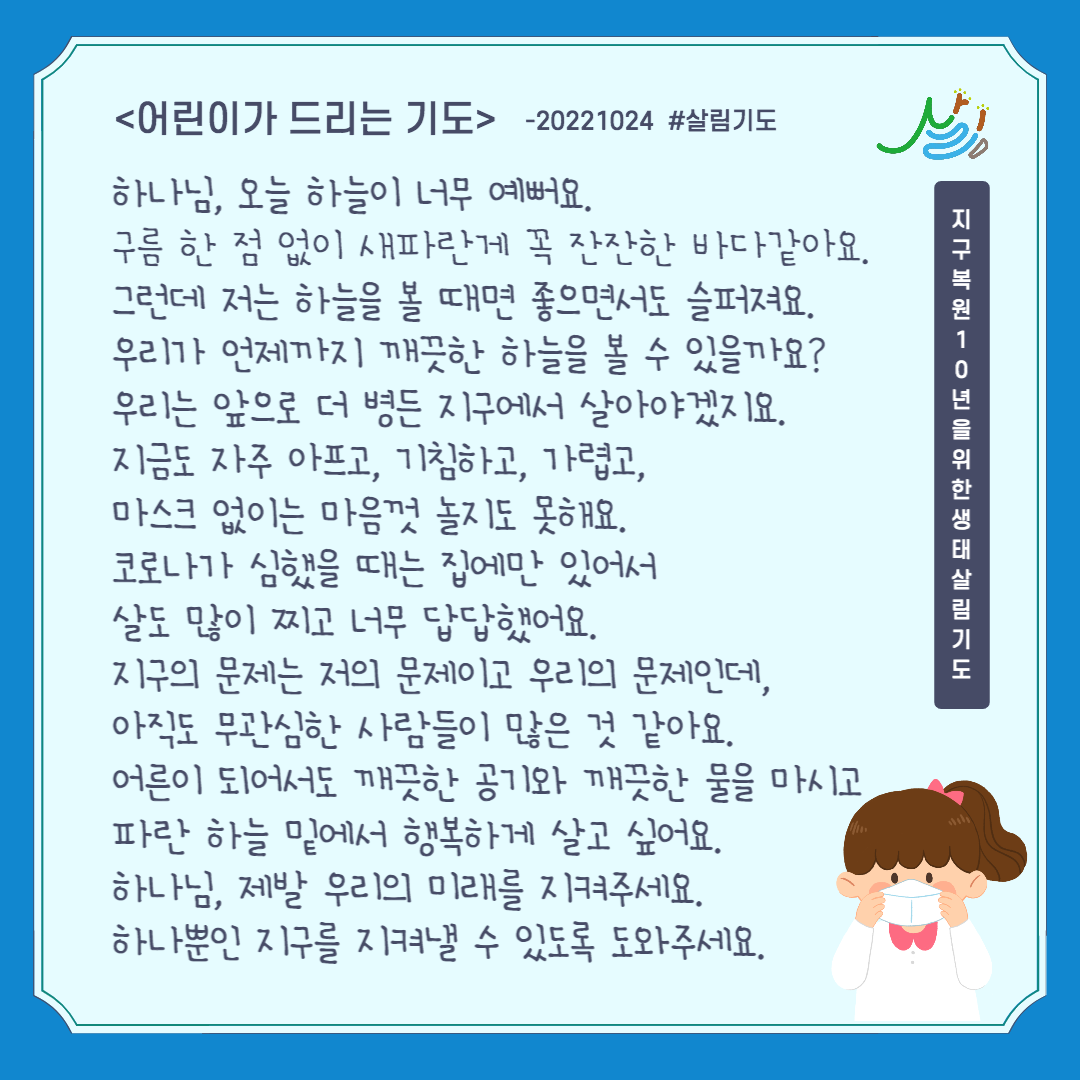 <어린이가 드리는 기도> -20221024 #살림기도
하나님, 오늘 하늘이 너무 예뻐요.
구름 한 점 없이 새파란게 꼭 잔잔한 바다같아요.
그런데 저는 하늘을 볼 때면 좋으면서도 슬퍼져요.
우리가 언제까지 깨끗한 하늘을 볼 수 있을까요?
우리는 앞으로 더 병든 지구에서 살아야겠지요.
지금도 자주 아프고, 기침하고, 가렵고,
마스크 없이는 마음껏 놀지도 못해요.
코로나가 심했을 때는 집에만 있어서
살도 많이 찌고 너무 답답했어요.
지구의 문제는 저의 문제이고 우리의 문제인데,
아직도 무관심한 사람들이 많은 것 같아요.
어른이 되어서도 깨끗한 공기와 깨끗한 물을 마시고
파란 하늘 밑에서 행복하게 살고 싶어요.
하나님, 제발 우리의 미래를 지켜주세요.
하나뿐인 지구를 지켜낼 수 있도록 도와주세요.
살림
지구복원10년을위한생태살림기도